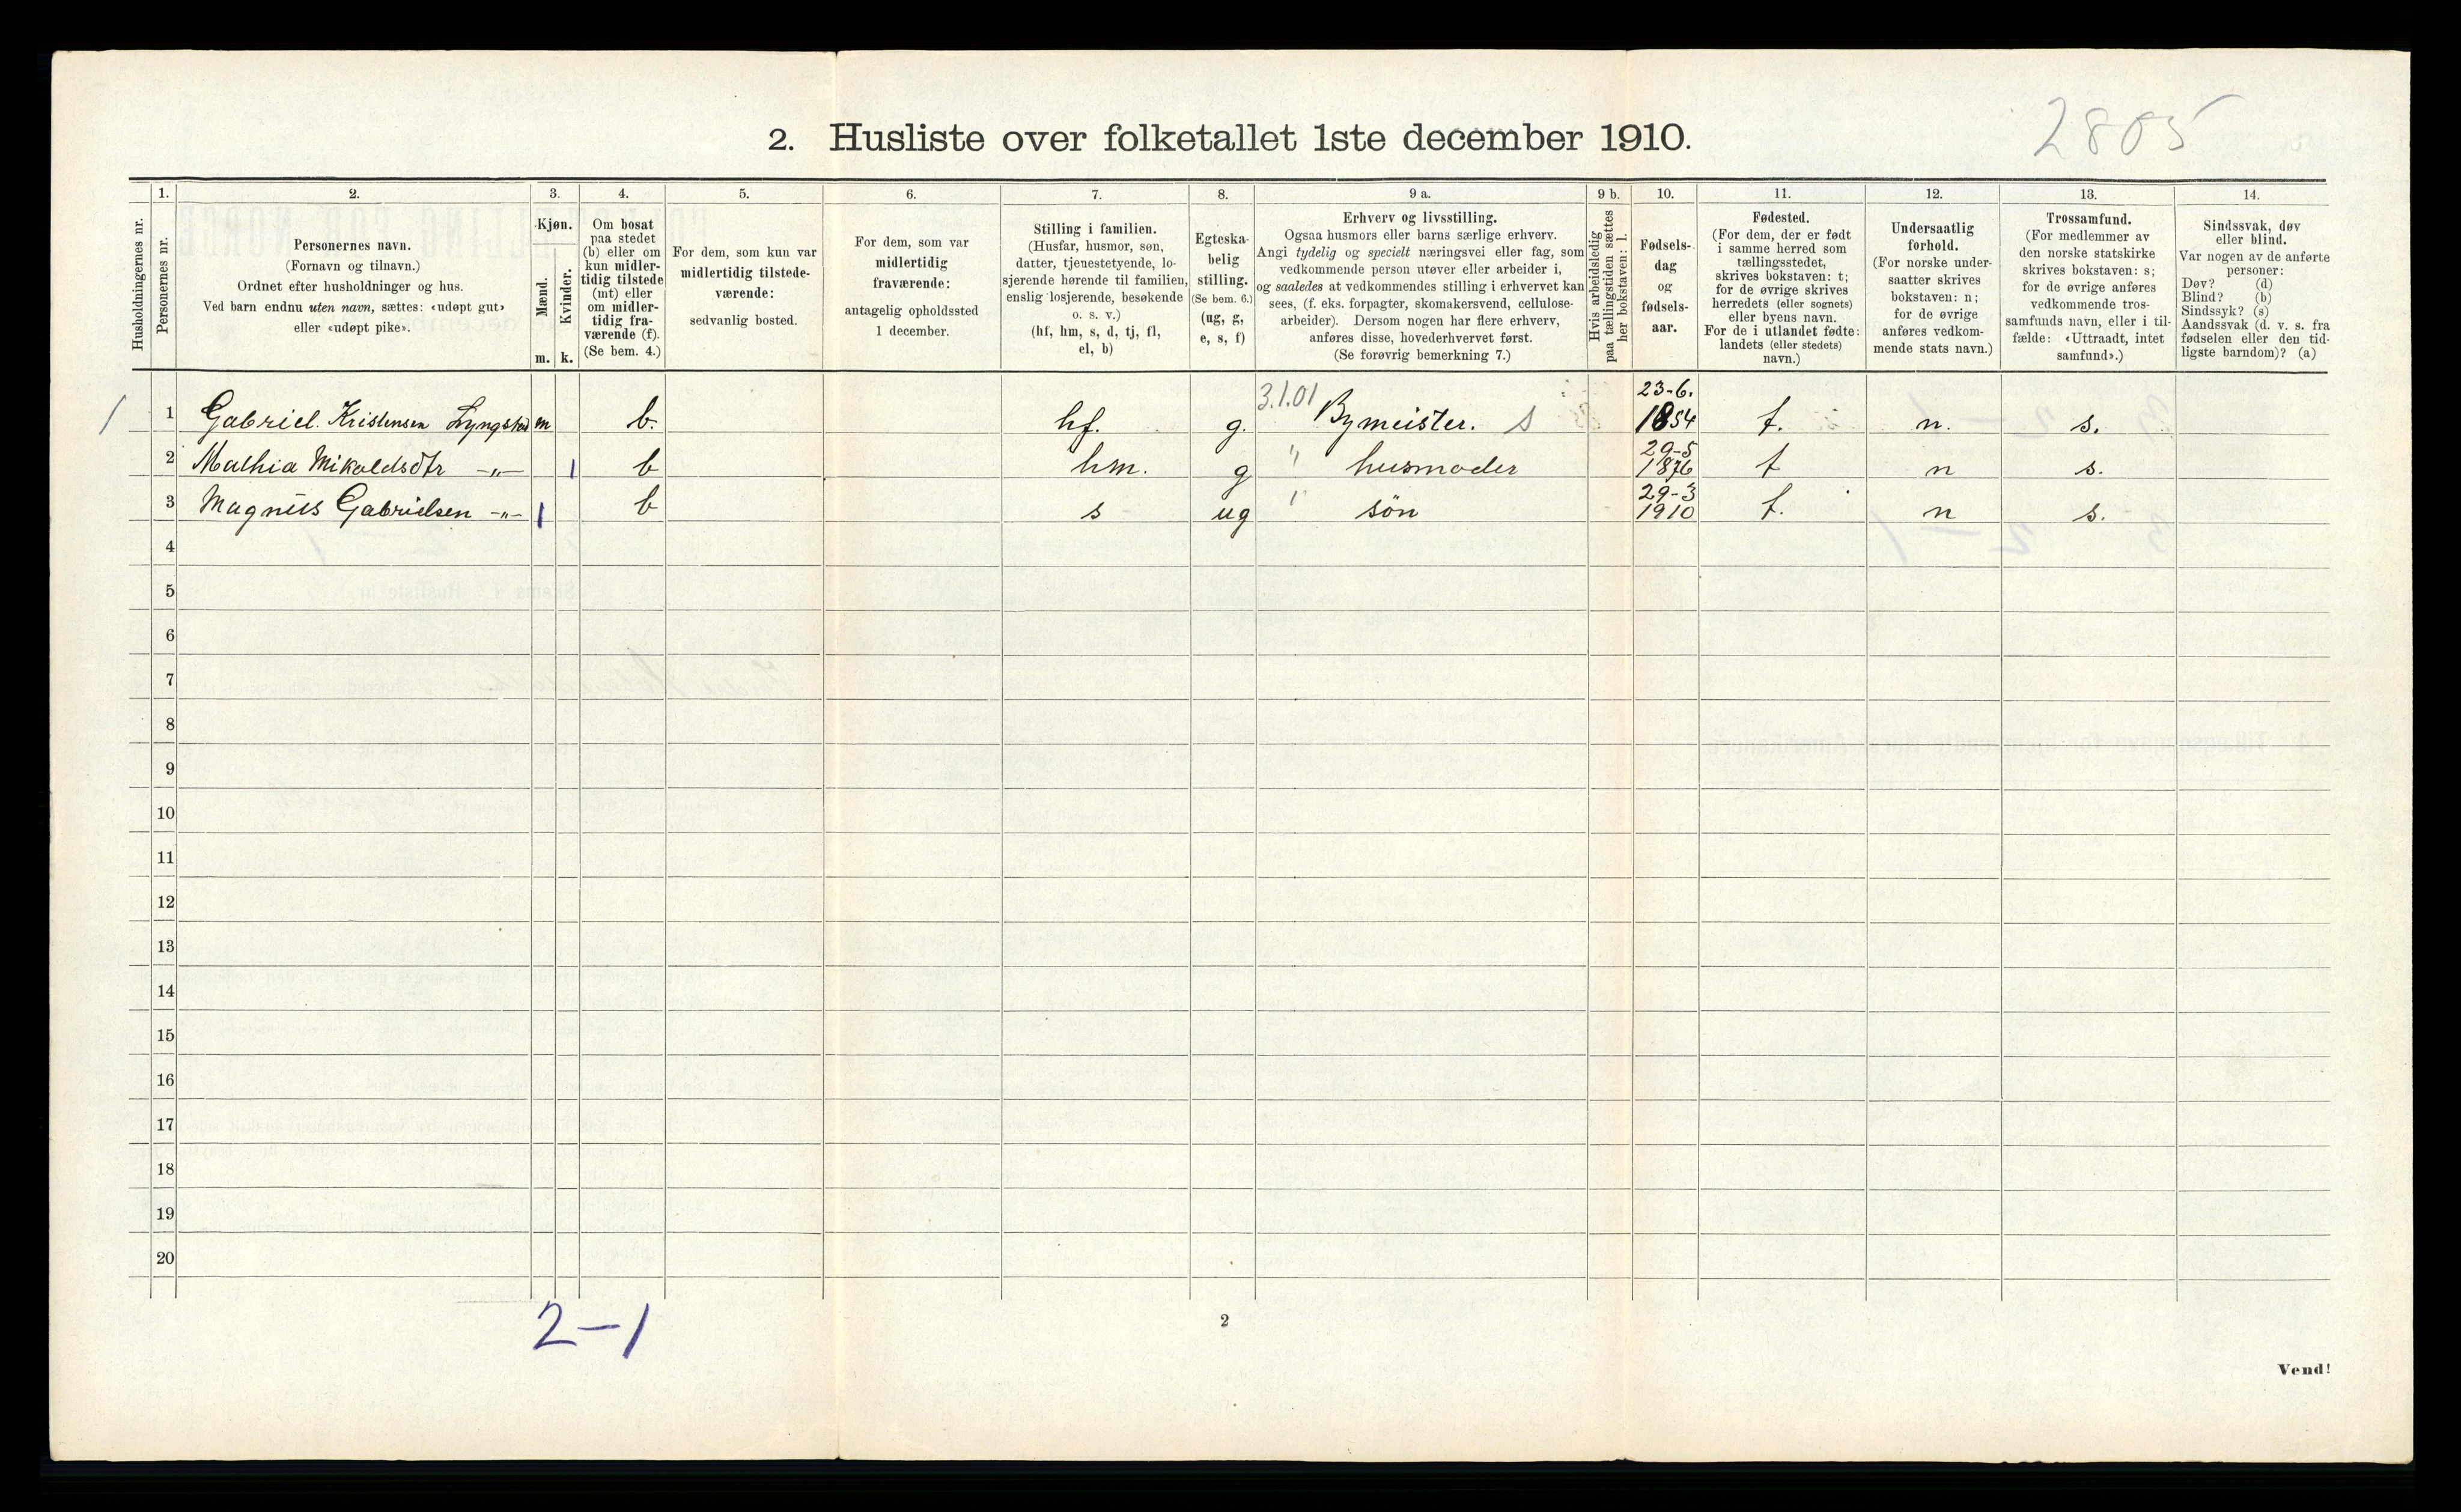 2805
2. Husliste over folketallet 1ste december 1910.
Husholdningernes nr.
1.
Personernes nr.
2.
Personernes navn.
(Fornavn og tilnavn.)
Ordnet efter husholdninger og hus.
Ved barn endnu uten navn, sættes: «udøpt gut»
eller «udøpt pike».
3.
Kjøn.
Mænd.
Kvinder.
m. k.
4.
Om bosat
paa stedet
(b) eller om
kun midler-
tidig tilstede
(mt) eller
om midler-
tidig fra-
værende (f).
(Se bem. 4.)
5.
For dem, som kun var
midlertidig tilstede-
værende:
sedvanlig bosted.
6.
For dem, som var
midlertidig
fraværende:
antagelig opholdssted
1 december.
7.
Stilling i familien.
(Husfar, husmor, søn,
datter, tjenestetyende, lo-
sjerende hørende til familien,
enslig losjerende, besøkende
o. s. v.)
(hf, hm, s, d, tj, fl,
el, b)
8.
Egteska-
belig
stilling.
(Se bem. 6.)
(ug, g,
e, s, f)
9 a.
Erhverv og livsstilling.
Ogsaa husmors eller barns særlige erhverv.
Angi tydelig og specielt næringsvei eller fag, som
vedkommende person utøver eller arbeider i,
og saaledes at vedkommendes stilling i erhvervet kan
sees, (f. eks. forpagter, skomakersvend, cellulose-
arbeider). Dersom nogen har flere erhverv,
anføres disse, hovederhvervet først.
(Se forøvrig bemerkning 7.)
9 b.
Hvis arbeidsledig
paa tællingstiden sættes
her bokstaven: l.
10.
Fødsels-
dag
og
fødsels-
aar.
11.
Fødested.
(For dem, der er født
i samme herred som
tællingsstedet,
skrives bokstaven: t;
for de øvrige skrives
herredets (eller sognets)
eller byens navn.
For de i utlandet fødte:
landets (eller stedets)
navn.)
12.
Undersaatlig
forhold.
(For norske under-
saatter skrives
bokstaven: n;
for de øvrige
anføres vedkom-
mende stats navn.)
13.
Trossamfund.
(For medlemmer av
den norske statskirke
skrives bokstaven: s;
for de øvrige anføres
vedkommende tros-
samfunds navn, eller i til-
fælde: «Uttraadt, intet
samfund».)
14.
Sindssvak, døv
eller blind.
Var nogen av de anførte
personer:
Døv? (d)
Blind? (b)
Sindssyk? (s)
Aandssvak (d. v. s. fra
fødselen eller den tid-
ligste barndom)? (a)
1 1 Gabriel Kristensen Lyngstad m b. hf. g. 3.1.01 Bymeister. s 23-6. 1854 t. n. s.
2 Mathia Mikaldsdtr -„- 1 b hm. g " husmoder 29-5 1876 t n s.
3 Magnus Gabrielsen -„- 1 b s ug " søn 29-3 1910 t. n s.
4
5
6
7
8
9
10
11
12
13
14
15
16
17
18
19
20
2-1
2
Vend!